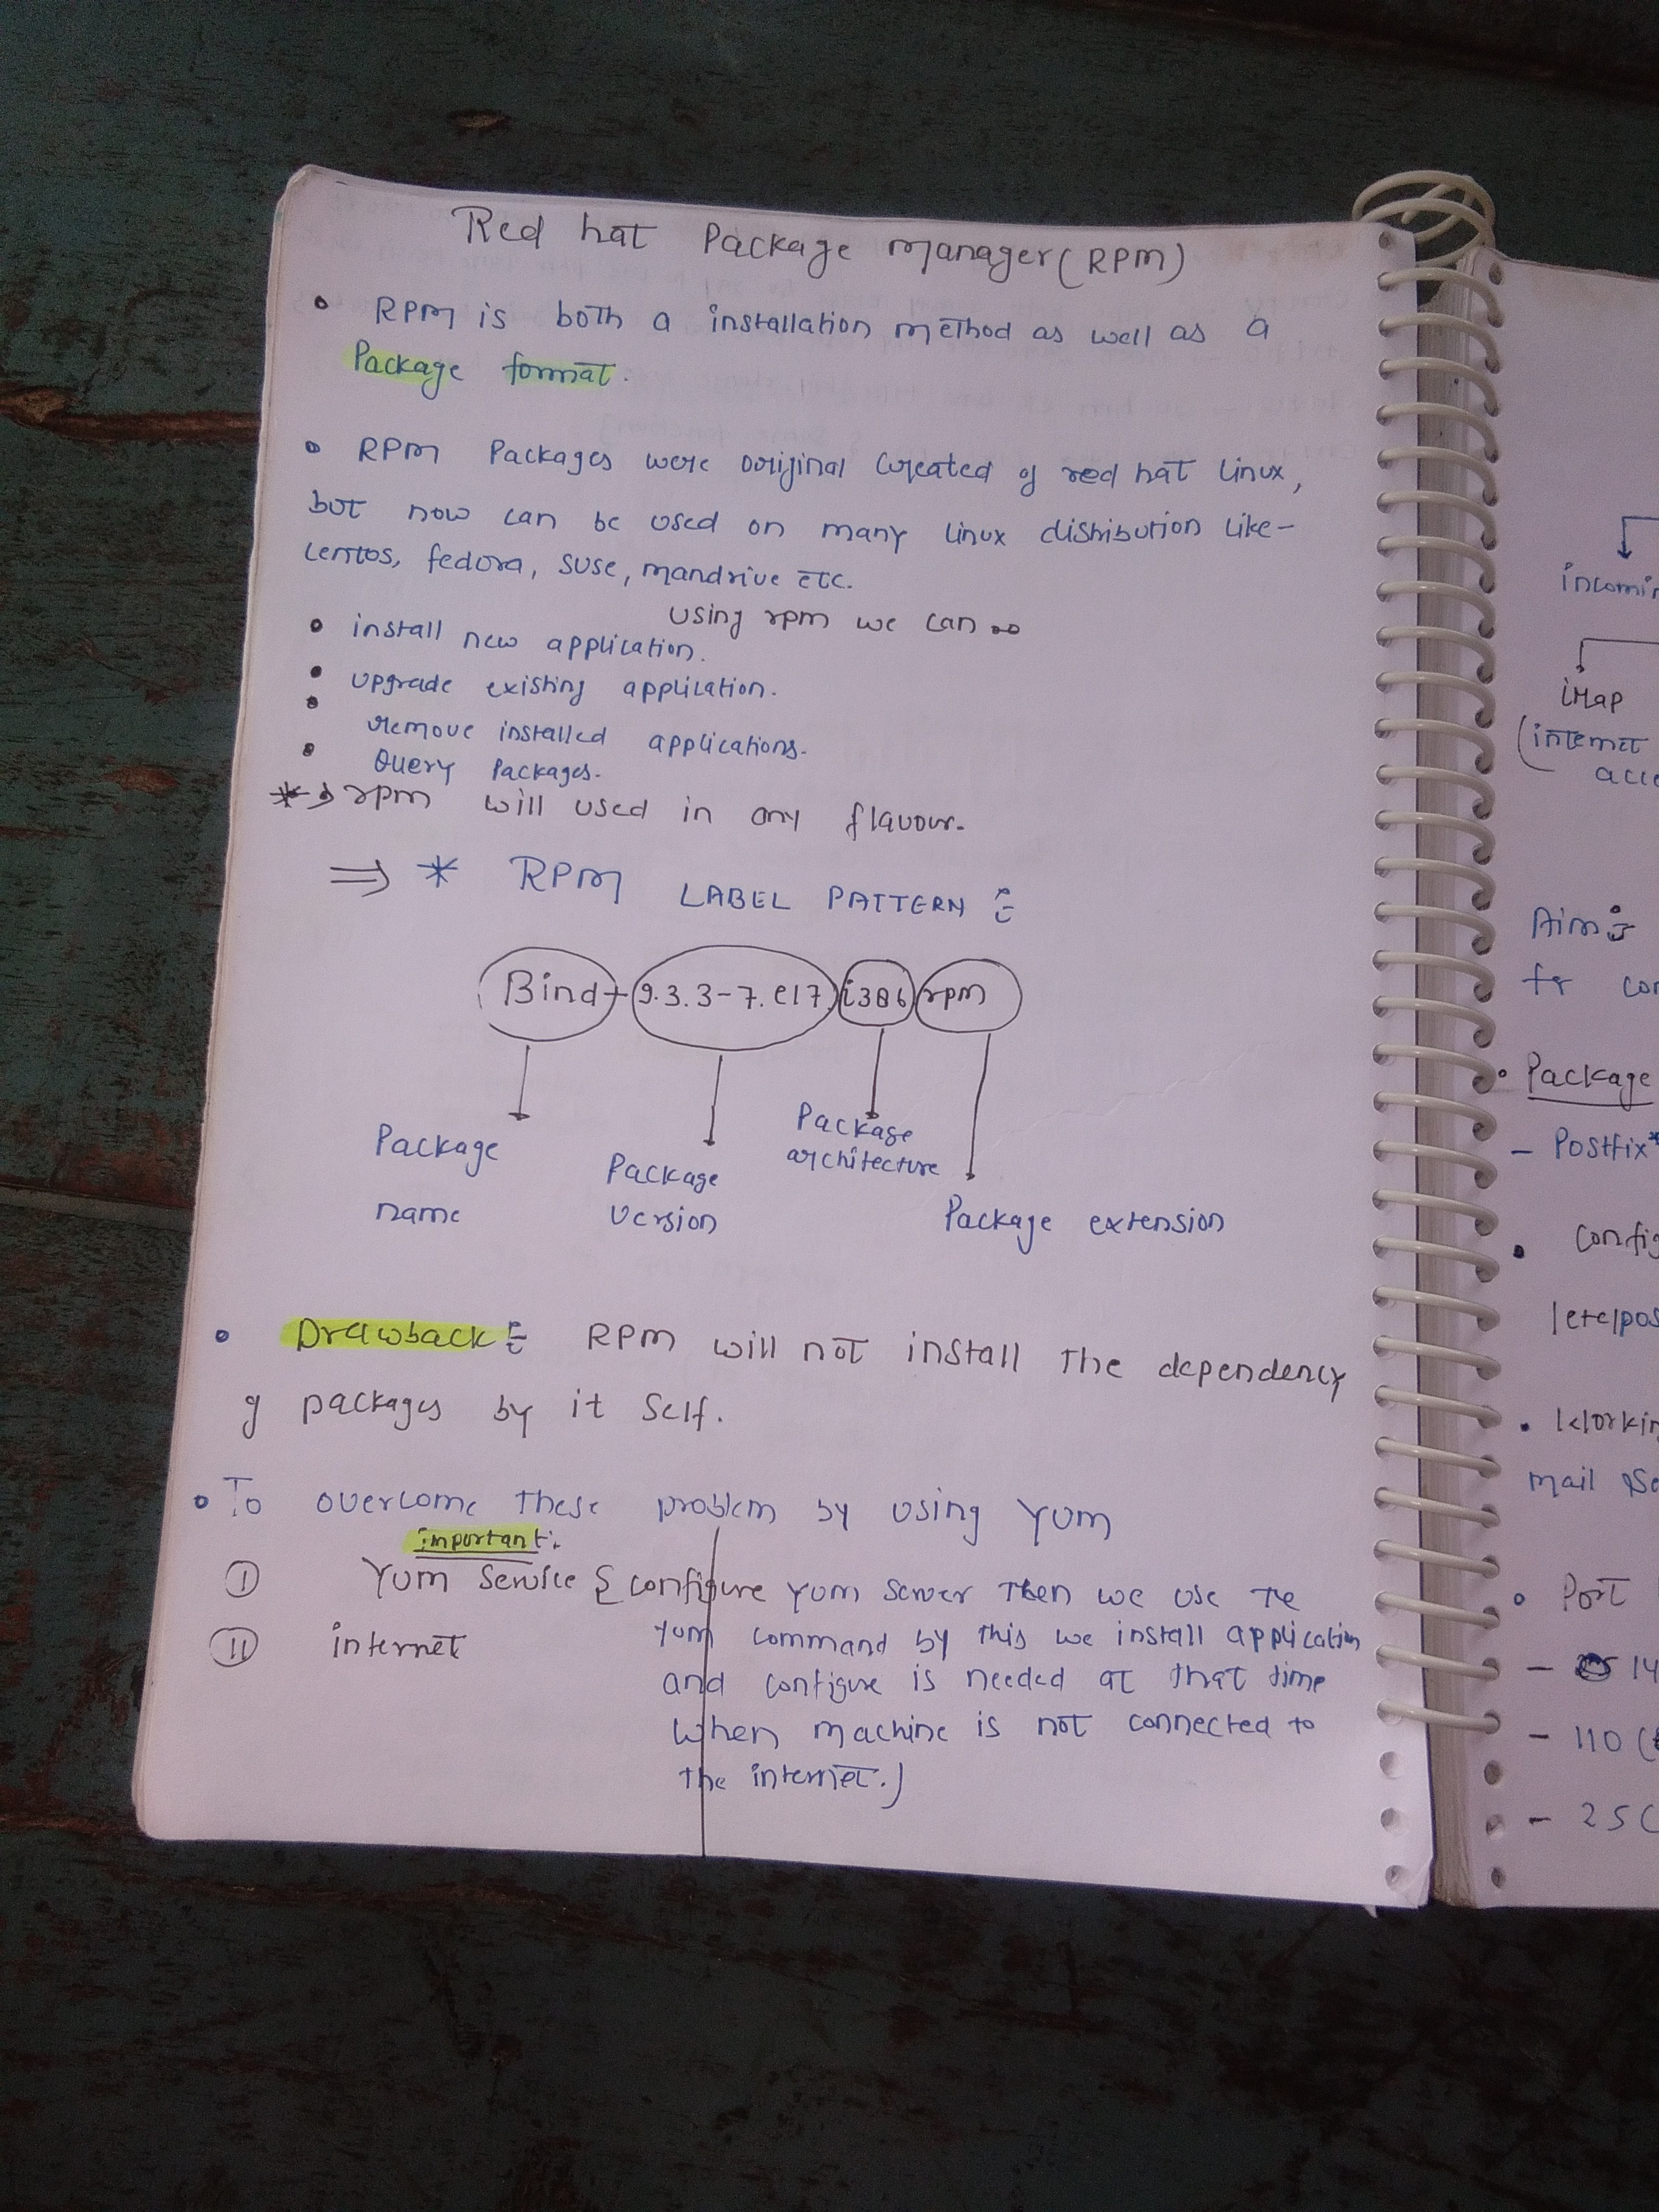 Red hat Package manager (RPM)
• RPM is both a installation method as well as a
Package format.
• RPM Packages were original created of red hat Linux,
but now can be used on many linux distribution like-
Centos, fedora, suse, mandrive etc.
using rpm we can
• install new application.
• upgrade existing application.
• remove installed applications.
• Query Packages.
* → rpm will used in any flavour.
⇒ * RPM LABEL PATTERN :-
Bind-9.3.3-7.el7.i386.rpm
Package name
Package version
Package architecture
Package extension
• Drawback :- RPM will not install the dependency
of packages by it self.
• To overcome these problem by using Yum
important:
I Yum Service { configure yum server then we use the
II internet
yum command by this we install application
and configure is needed at that time
when machine is not connected to
the internet.)
incomin
iMap
(internet
acce
Aim :-
fr con
• Package
- Postfix*
• Config
/etc/pos
• Workin
mail Se
• Port
- 14
- 110 (
- 25 (